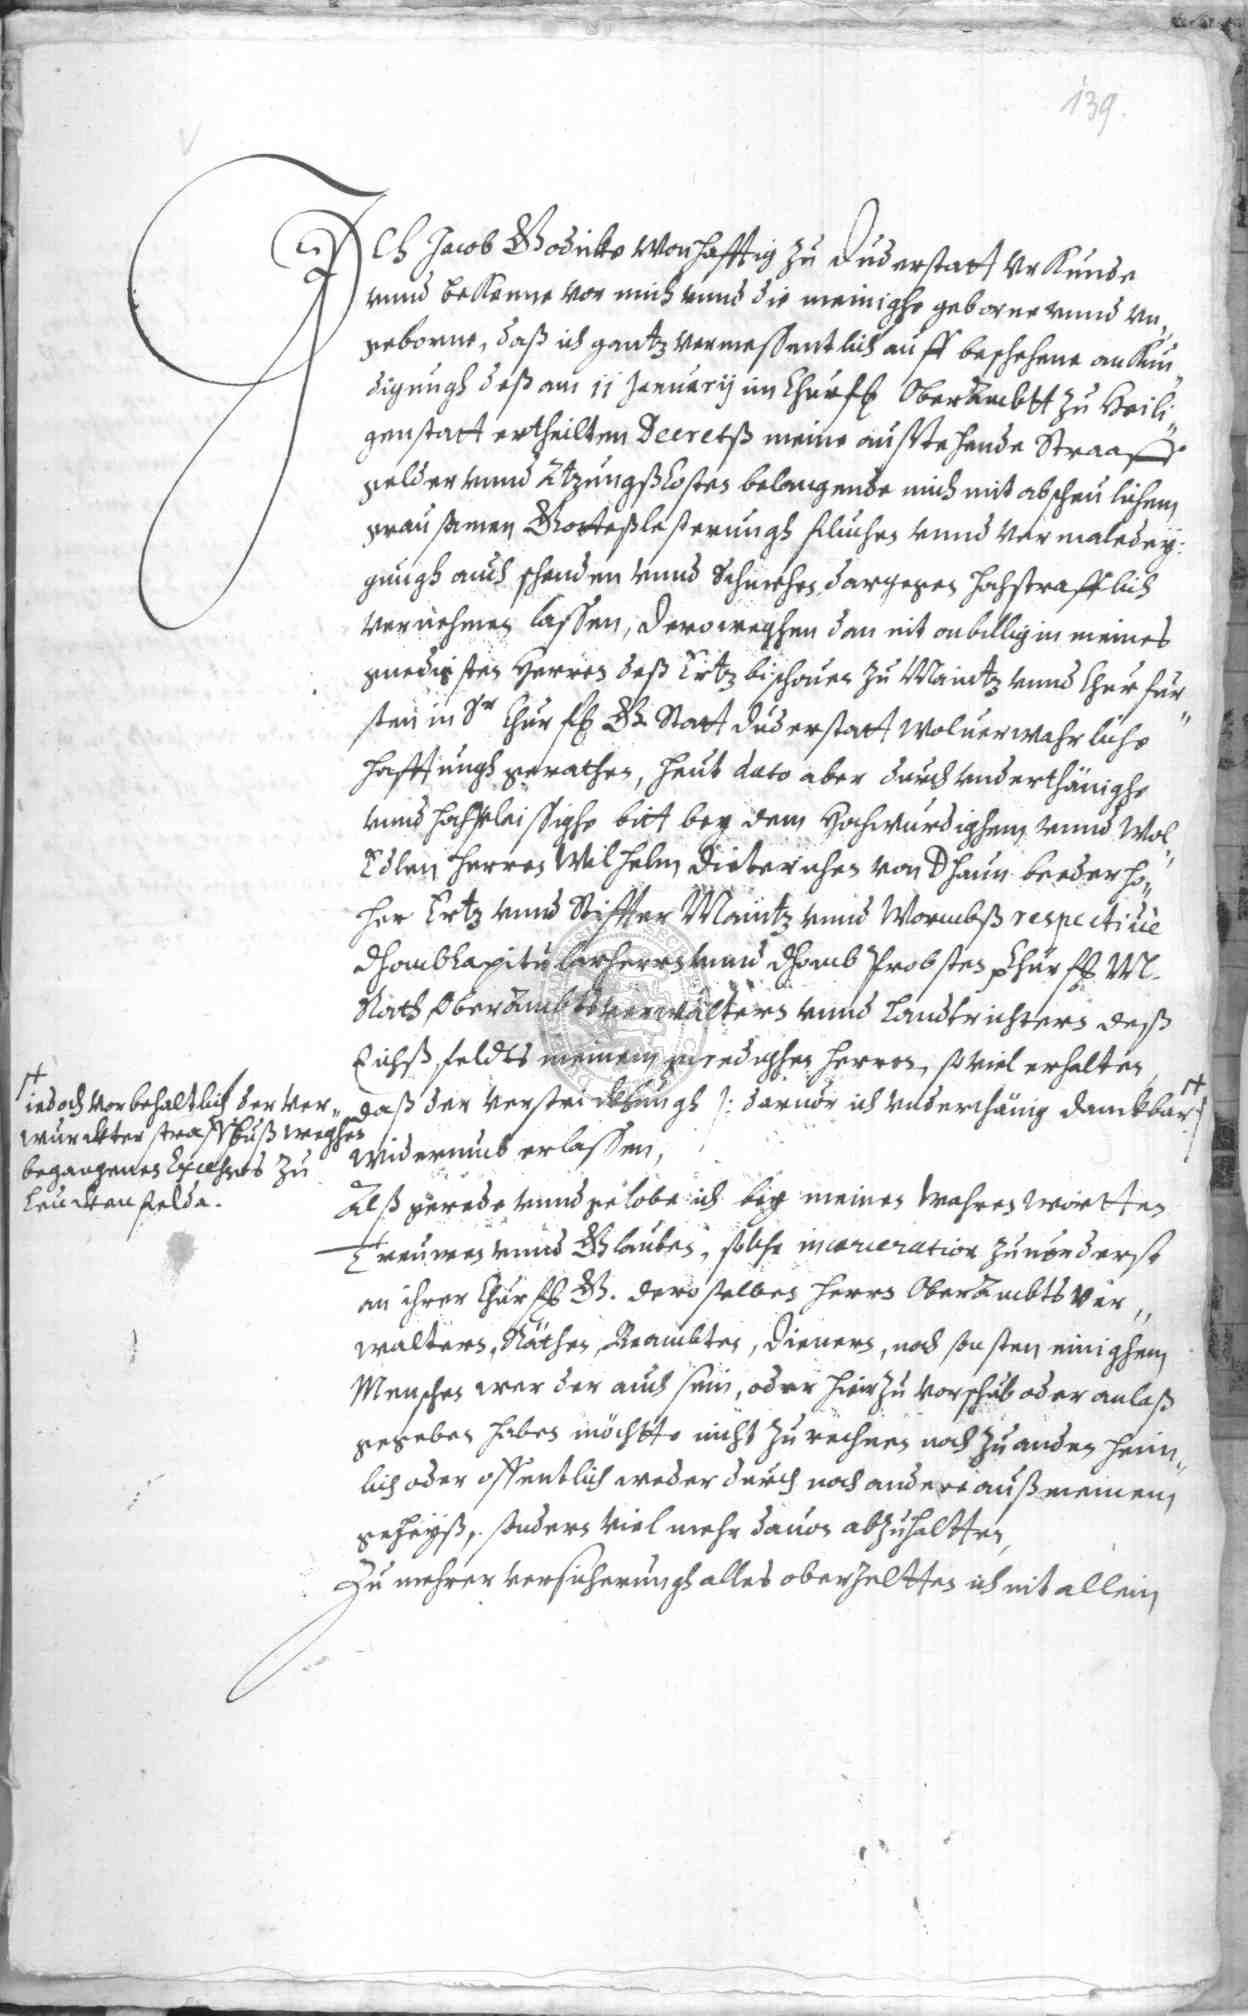 139.
Ich Jacob Godicke Wonhafftig zu Duderstatt Vrkunde
vnnd bekenne vor mich vnnd die meinighe geborne vnnd vn„
geborne, daß ich gantz vermessentlich auff beschehene ankün„
digungh deß am 11 Januerij im Churfl Oberambtt zu Heili„
genstatt ertheilten Decretß meine außstehende Straaff
gelder vnnd Atzungßkosten belangende mich mit abscheulichem
grausamen Gotteßlesterungh fluchen vnnd vermaledey:
gungh auch schenden vnnd Schmehen dargegen hochstrafflich
vernehmen lassen, Deroweghen dan nit onbillig in meines
gnedigsten Herren deß Ertzbischouen zu Maintz vnnd Churfür„
sten in Sr Churfl G Statt Duderstatt woluerwahrliche
hafftungh gerathen, heut dato aber durch vnderthänighe
vnnd hochfleissighe bitt bey dem Hochwürdighem vnnd Wol„
Edlen Herren Wilhelm Dieterichen von Dhaun beeder ho„
her Ertz vnnd Stiffter Maintz vnnd Wormbß respectiue
DhombCapitularherrn vnnd Dhomb Probsten Churfl M.
Rath Oberambtsverwalters vnnd Landtrichters deß
Eichßfeldts meinem gnedighen herren, soviel erhalten,
daß der verstrickhungh /: daruor ich vnderthänig danckbar :/ #
widerumb erlassen,
# iedoch vorbehaltlich der ver„
wurckter straffbuß weghen
begangenen Excehses zu
Leuckenfelde.
Alß gerede vnnd gelobe ich bey meinen wahren wortten
Treuwen vnnd Glauben, solche incarceration zuuorderst
an ihrer Churfl G. dero selben herrn Oberambtsver„
walters, Räthen, Beambten, Dienern, noch sonsten einighem
Menschen wer der auch sein, oder hierzu vorschub oder anlaß
gegeben haben möchtte nicht zu rechnen noch zu anden heim„
lich oder offentlich weder durch noch andere auß meinem
geheyß, sondern viel mehr dauon abzuhaltten,
Zu mehrer versicherungh alles oberzeltten ich nit allein